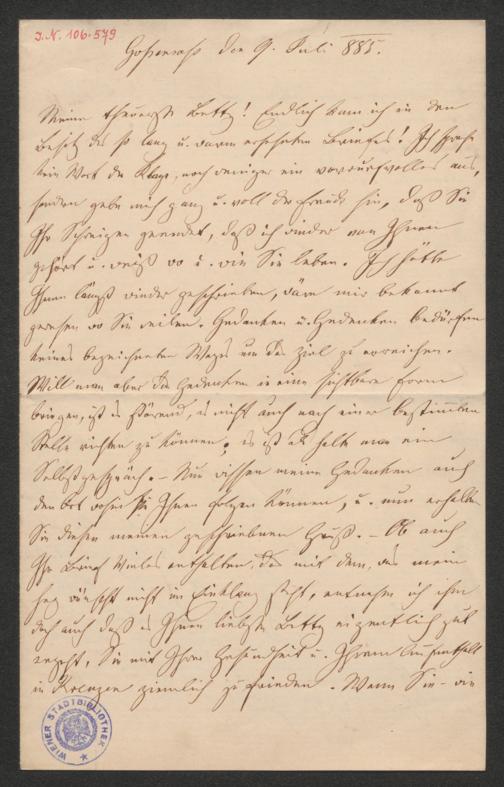 J.N. 106.579
Gossensass den 9. Juli 885.
Meine theuerste Betty! Endlich kam ich in den
Besitz des so lang u. warm ersehnten Briefes! Ich spreche
kein Wort der Klage, noch weniger ein vorwurfvolles aus,
sondern gebe mich ganz u. voll der Freude hin, daß Sie
Ihr Schweigen geendet, daß ich wieder von Ihnen
gehört u. weiß wo u. wie Sie leben. Ich hätte
Ihnen längst wieder geschrieben, wäre mir bekannt
gewesen wo Sie weilen. Gedanken u. Gedenken bedürfen
keines bezeichneten Weges um das Ziel zu erreichen.
Will man aber das Gedenken in eine sichtbare Form
bringen, ist es störend, es nicht auch nach einer bestimmten
Stelle richten zu können, es ist als halte man ein
Selbstgespräch. – Nun wissen meine Gedanken auch
den Ort wohin sie Ihnen folgen können, u. nun erhalten
Sie diesen meinen geschriebenen Gruß. – Ob auch
Ihr Brief Vieles enthalten, das mit dem, was mein
Herz wünscht nicht im Einklang steht, entnehme ich ihm
doch auch daß es Ihnen liebste Betty eigentlich gut
ergeht, Sie mit Ihrer Gesundheit u. Ihrem Aufenthalt
in ziemlich zufrieden. Wenn Sie – wie
WIENER STADTBIBLIOTHEK